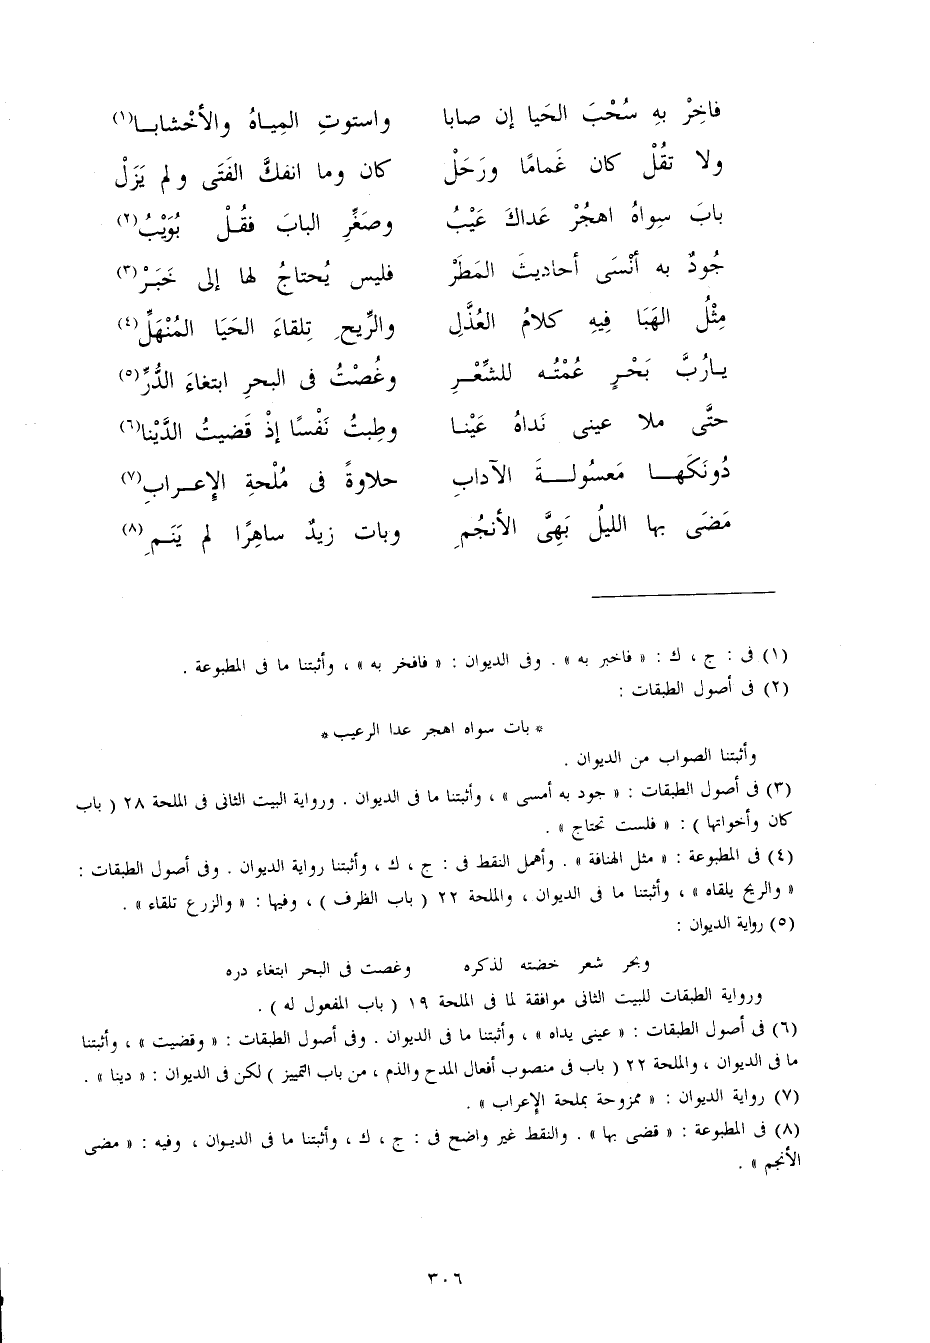 فاخِرْ بِهِ سُحْبَ الحَيا إن صابا واستوتِ المِياهُ والأخْشابا(١)
ولا تقُلْ كان غَمامًا ورَحَلْ كان وما انفكَّ الفَتَى ولم يَزَلْ
بابَ سِواهُ اهجُرْ عَداكَ عَيْبُ وصَغِّرِ البابَ فقُلْ بُوَيْبُ(٢)
جُودٌ به أَنْسَى أحاديثَ المَطَرْ فليس يُحتاجُ لها إلى خَبَرْ(٣)
مِثْلُ الهَبَا فِيهِ كلامُ العُذَّلِ والرِّيحِ تِلقاءَ الحَيَا المُنْهَلِّ(٤)
يارُبَّ بَحْرٍ عُمْتُه للشِّعْرِ وغُصْتُ فى البحرِ ابتغاءَ الدُّرِّ(٥)
حتَّى ملا عينى نَداهُ عَيْنا وطِبتُ نَفْسًا إذْ قَضيتُ الدَّيْنا(٦)
دُونَكَها مَعسُولةَ الآدابِ حلاوةً فى مُلْحةِ الإعرابِ(٧)
مَضَى بها الليلُ بَهِىَّ الأنجُمِ وبات زيدٌ ساهِرًا لم يَنَمِ(٨)
(١) فى : ج ، ك : « فاخبر به » . وفى الديوان : « فافخر به » ، وأثبتنا ما فى المطبوعة .
(٢) فى أصول الطبقات :
* بات سواه اهجر عدا الرعيب *
وأثبتنا الصواب من الديوان .
(٣) فى أصول الطبقات : « جود به أمسى » ، وأثبتنا ما فى الديوان . ورواية البيت الثانى فى الملحة ٢٨ ( باب
كان وأخواتها ) : « فلست تحتاج » .
(٤) فى المطبوعة : « مثل الهنافة » . وأهمل النقط فى : ج ، ك ، وأثبتنا رواية الديوان . وفى أصول الطبقات :
« والريح يلقاه » ، وأثبتنا ما فى الديوان ، والملحة ٢٢ ( باب الظرف ) ، وفيها : « والزرع تلقاء » .
(٥) رواية الديوان :
وبحر شعر خضته لذكره وغصت فى البحر ابتغاء دره
ورواية الطبقات للبيت الثانى موافقة لما فى الملحة ١٩ ( باب المفعول له ) .
(٦) فى أصول الطبقات : « عينى يداه » ، وأثبتنا ما فى الديوان . وفى أصول الطبقات : « وقضيت » ، وأثبتنا
ما فى الديوان ، والملحة ٢٢ ( باب فى منصوب أفعال المدح والذم ، من باب التمييز ) لكن فى الديوان : « دينا » .
(٧) رواية الديوان : « ممزوحة بملحة الإعراب » .
(٨) فى المطبوعة : « قضى بها » . والنقط غير واضح فى : ج ، ك ، وأثبتنا ما فى الديوان ، وفيه : « مضى
الأنجم » .
٣٠٦